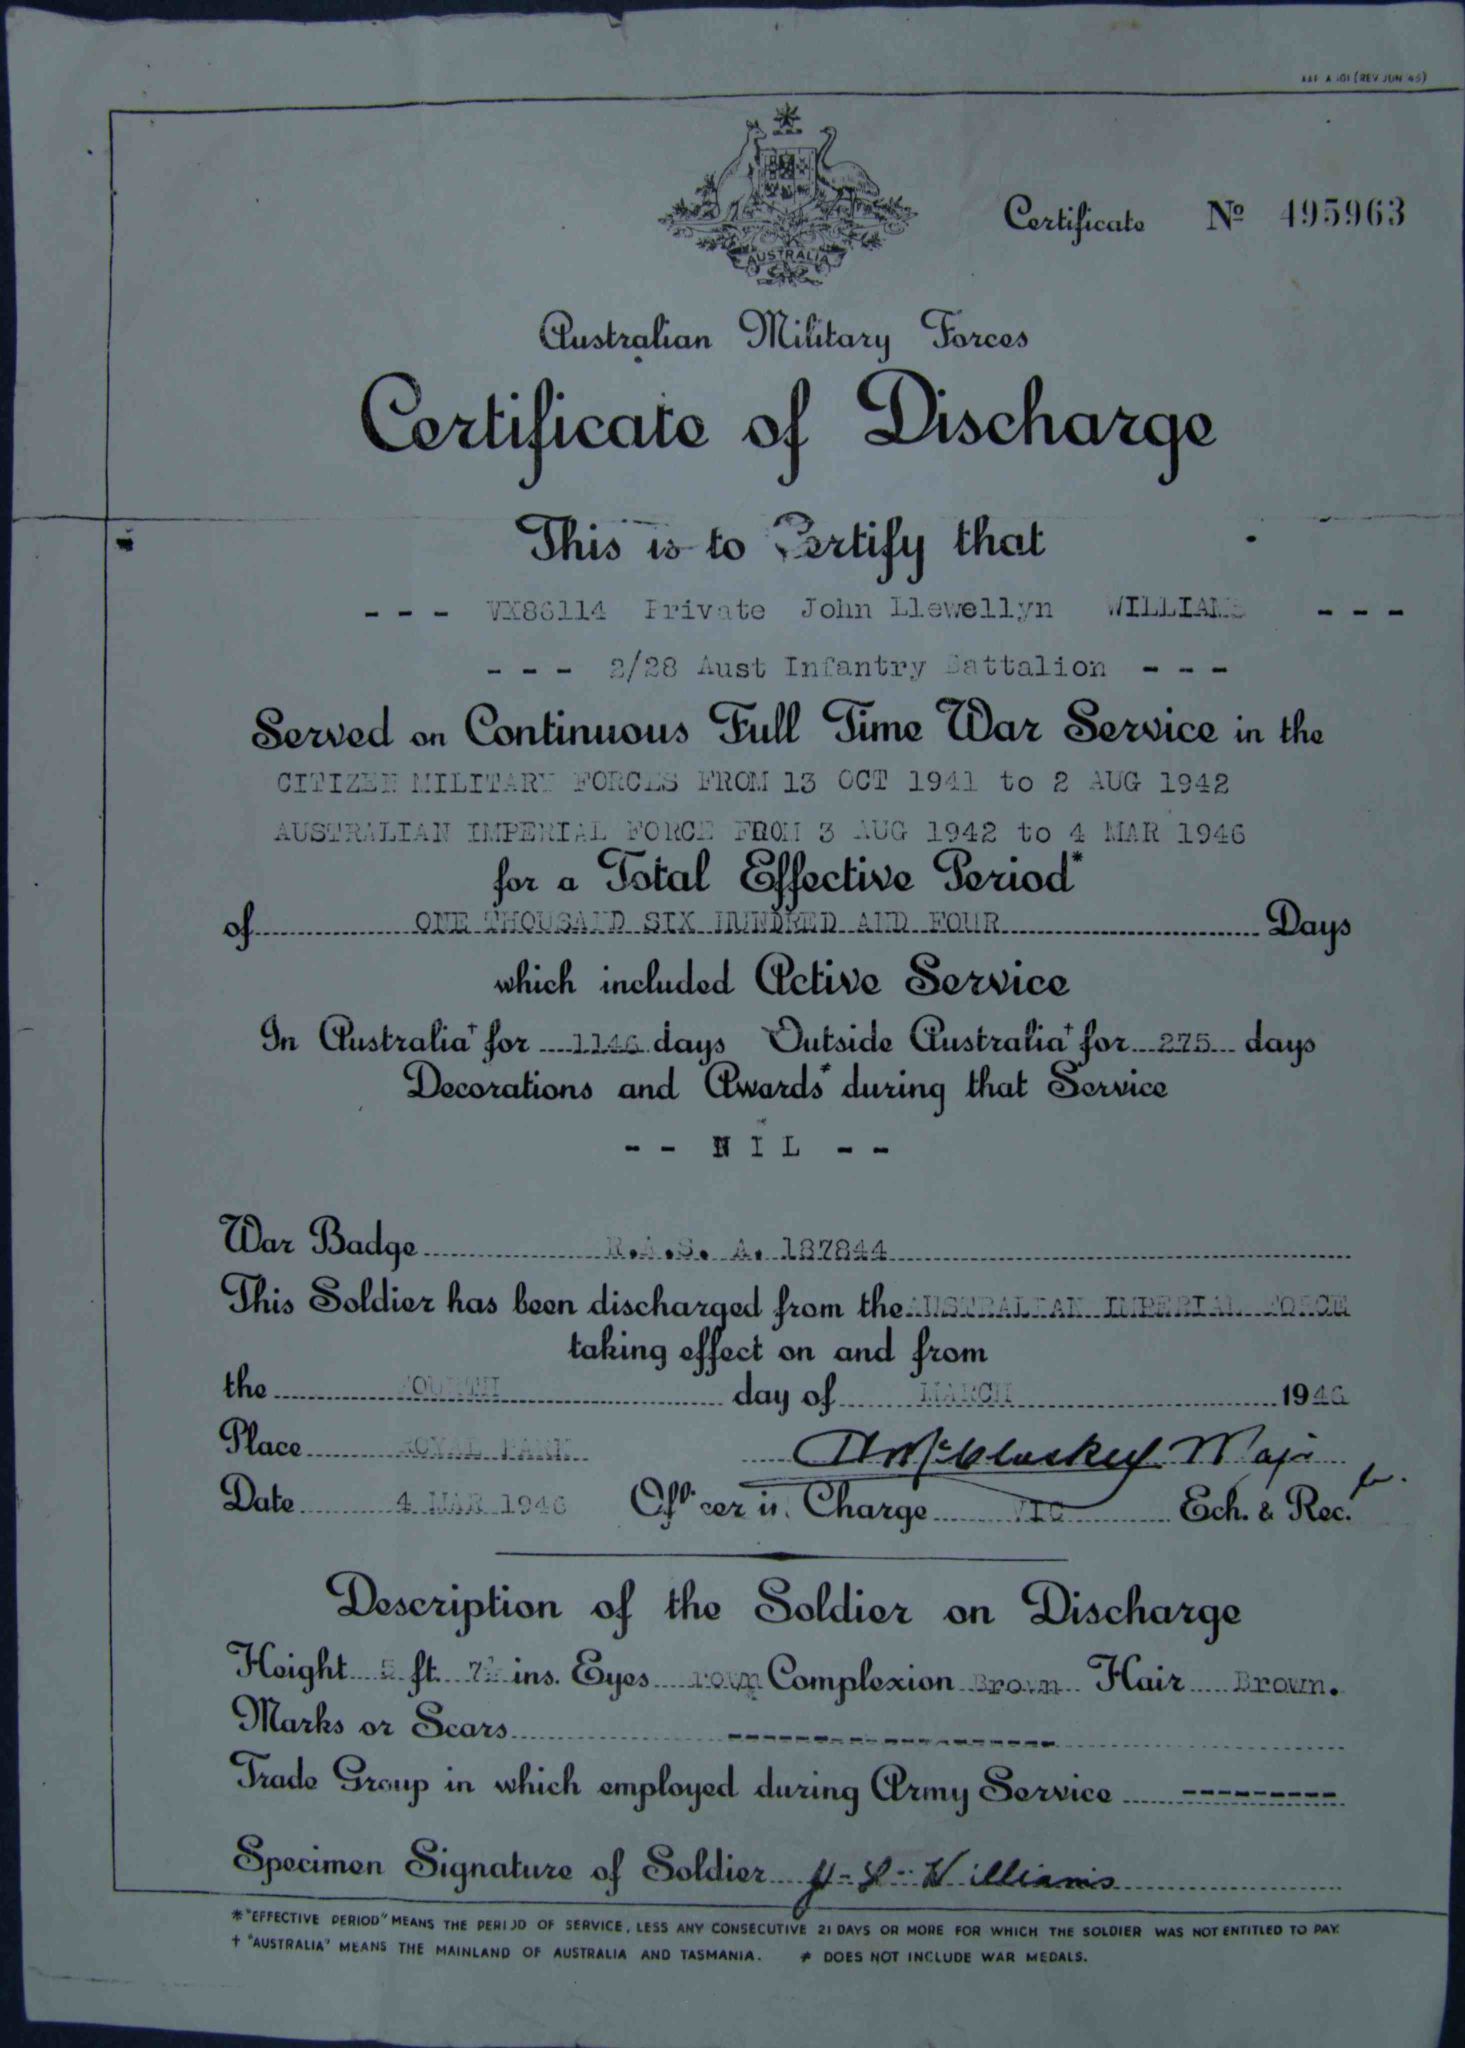 AAF A 101 (REV. JUN 45)
AUSTRALIA
Certificate No 495963
Australian Military Forces
Certificate of Discharge
This is to Certify that
--- VX86114 Private John Llewellyn WILLIAMS ---
--- 2/28 Aust Infantry Battalion ---
Served on Continuous Full Time War Service in the
CITIZEN MILITARY FORCES FROM 13 OCT 1941 to 2 AUG 1942
AUSTRALIAN IMPERIAL FORCE FROM 3 AUG 1942 to 4 MAR 1946
for a Total Effective Period*
of ONE THOUSAND SIX HUNDRED AND FOUR Days
which included Active Service
In Australia† for 1146 days Outside Australia† for 275 days
Decorations and Awards≠ during that Service
-- NIL --
War Badge R.A.S. A. 187844
This Soldier has been discharged from the AUSTRALIAN IMPERIAL FORCE
taking effect on and from
the FOURTH day of MARCH 1946
Place ROYAL PARK Major
Date 4 MAR 1946 Officer in Charge VIC Ech. & Rec.
Description of the Soldier on Discharge
Height 5 ft. 7½ ins. Eyes rown Complexion Brown Hair Brown.
Marks or Scars ------------------
Trade Group in which employed during Army Service ---------
Specimen Signature of Soldier J-L-Williams
* "EFFECTIVE PERIOD" MEANS THE PERIOD OF SERVICE, LESS ANY CONSECUTIVE 21 DAYS OR MORE FOR WHICH THE SOLDIER WAS NOT ENTITLED TO PAY.
† "AUSTRALIA" MEANS THE MAINLAND OF AUSTRALIA AND TASMANIA. ≠ DOES NOT INCLUDE WAR MEDALS.